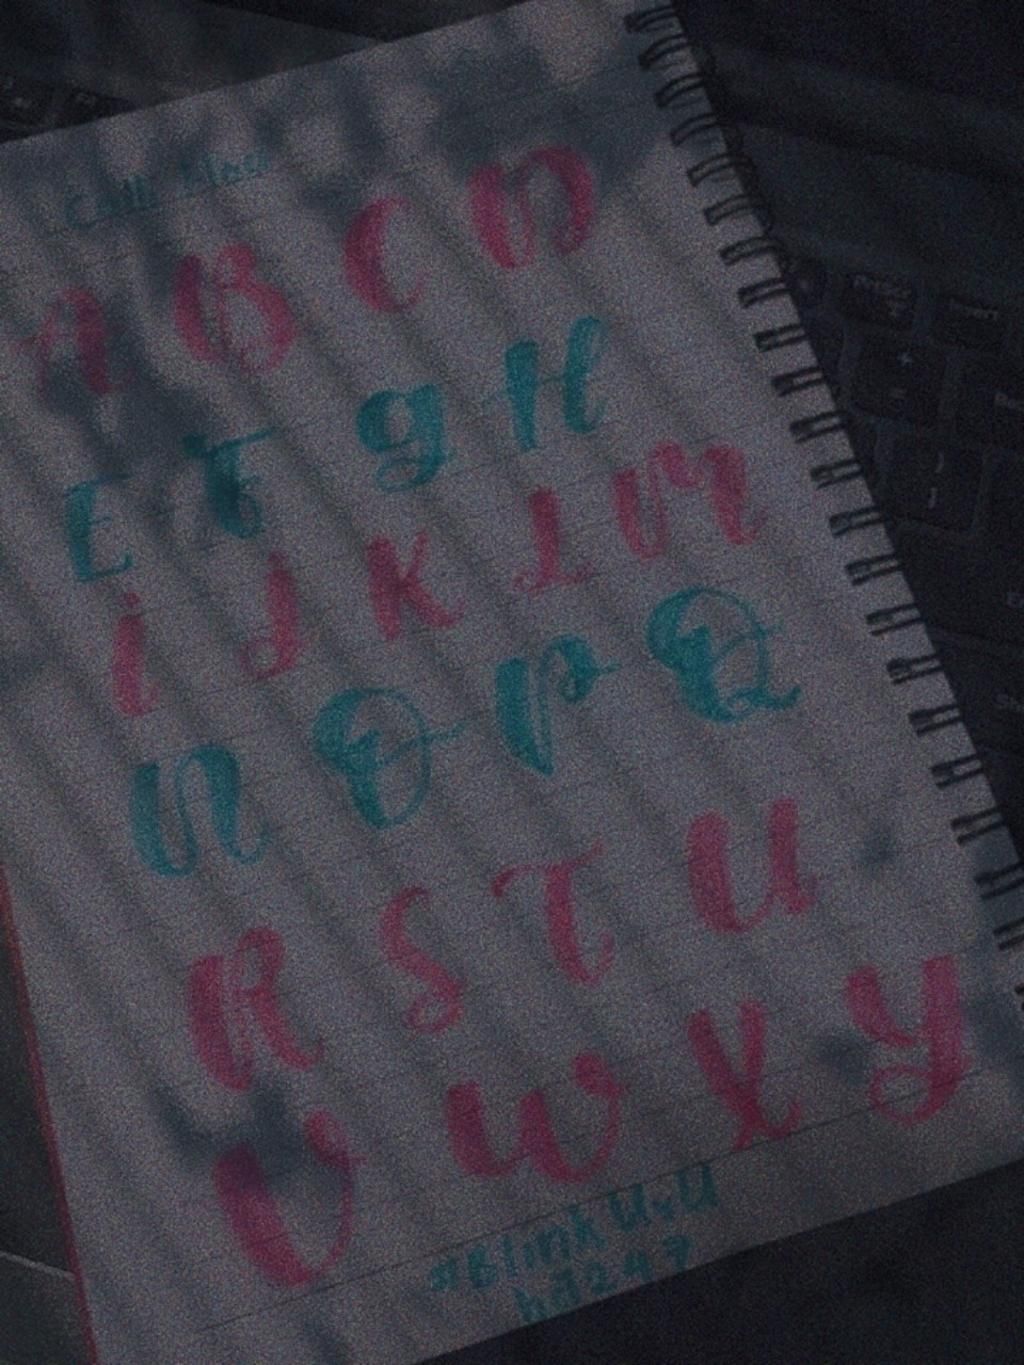 A B C D
E F g H
i J K L M
N O P Q
R S T U
V W X Y
#Blink UwU
hd247